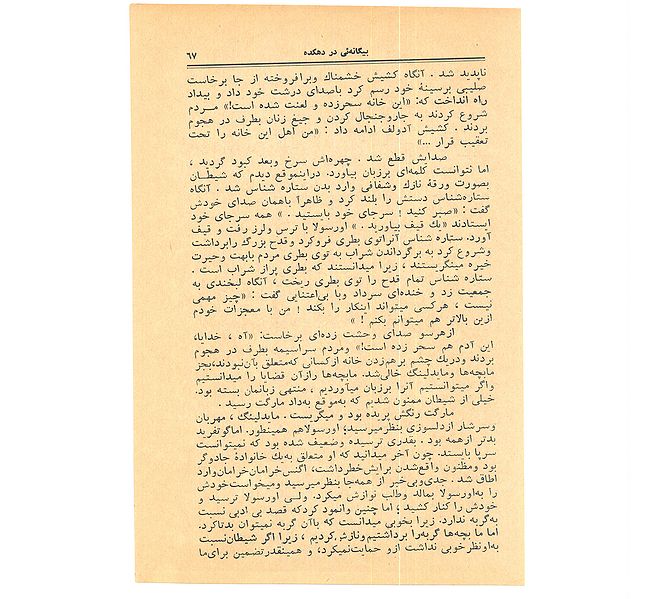 بیگانه‌ئی در دهکده
۶۷
ناپدید شد . آنگاه کشیش خشمناك وبرافروخته از جا برخاست
صلیبی برسینهٔ خود رسم کرد باصدای درشت خود داد و بیداد
راه انداخت که: «این خانه سحرزده و لعنت شده است!» مردم
شروع کردند به جاروجنجال کردن و جیغ زنان بطرف در هجوم
بردند . کشیش آدولف ادامه داد : «من اهل این خانه را تحت
تعقیب قرار ...»
صدایش قطع شد . چهره‌اش سرخ وبعد کبود گردید ،
اما نتوانست کلمه‌ای برزبان بیاورد. دراینموقع دیدم که شیطان
بصورت ورقهٔ نازك وشفافی وارد بدن ستاره شناس شد . آنگاه
ستاره‌شناس دستش را بلند کرد و ظاهراً باهمان صدای خودش
گفت : «صبر کنید ! سرجای خود بایستید . » همه سرجای خود
ایستادند «یك قیف بیاورید . » اورسولا با ترس ولرز رفت و قیف
آورد. ستاره شناس آنراتوی بطری فروکرد وقدح بزرگ رابرداشت
وشروع کرد به برگرداندن شراب به توی بطری مردم بابهت وحیرت
خیره مینگریستند ، زیرا میدانستند که بطری پراز شراب است .
ستاره شناس تمام قدح را توی بطری ریخت ، آنگاه لبخندی به
جمعیت زد و خنده‌ای سرداد وبا بی‌اعتنایی گفت : «چیز مهمی
نیست ، هرکسی میتواند اینکار را بکند ! من با معجزات خودم
ازین بالاتر هم میتوانم بکنم ! »
ازهرسو صدای وحشت زده‌ای برخاست: «آه ، خدایا،
این آدم هم سحر زده است!» ومردم سراسیمه بطرف در هجوم
بردند ودریك چشم برهم‌زدن خانه ازکسانی که‌متعلق بآن‌نبودند،بجز
مابچه‌ها ومایدلینگ خالی‌شد. مابچه‌ها رازآن قضایا را میدانستیم
واگر میتوانستیم آنرا برزبان میآوردیم ، منتهی زبانمان بسته بود.
خیلی از شیطان ممنون شدیم که به‌موقع به‌داد مارگت رسید .
مارگت رنگش پریده بود و میگریست . مایدلینگ ، مهربان
وسرشار ازدلسوزی بنظرمیرسید؛ اورسولاهم همینطور. اماگوتفرید
بدتر ازهمه بود . بقدری ترسیده وضعیف شده بود که نمیتوانست
سرپا بایستد. چون آخر میدانید که او متعلق به‌یك خانوادهٔ جادوگر
بود ومظنون واقع‌شدن برایش‌خطرداشت، اگنس‌خرامان‌خرامان‌وارد
اطاق شد . جدی‌وبی‌خبر از همه‌جا بنظرمیرسید ومیخواست‌خودش
را به‌اورسولا بمالد وطالب نوازش میکرد. ولی اورسولا ترسید و
خودش را کنار کشید ؛ اما چنین وانمود کردکه قصد بی ادبی نسبت
به‌گربه ندارد. زیرا بخوبی میدانست که باآن گربه نمیتوان بدتاکرد.
اما ما بچه‌ها گربه‌را برداشتیم‌ونازش‌کردیم ، زیرا اگر شیطان‌نسبت
به‌اونظرخوبی نداشت ازو حمایت‌نمیکرد، و همینقدرتضمین برای‌ما